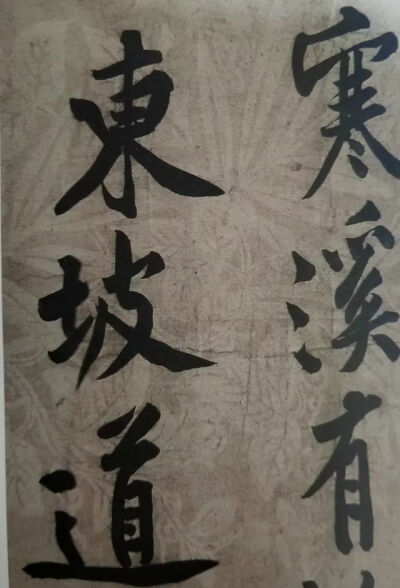 寒溪有
東坡道